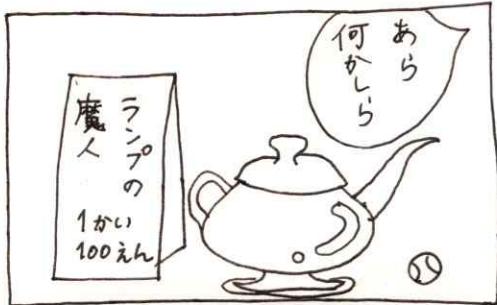 あら
何かしら
ランプの
魔人
1かい
100えん